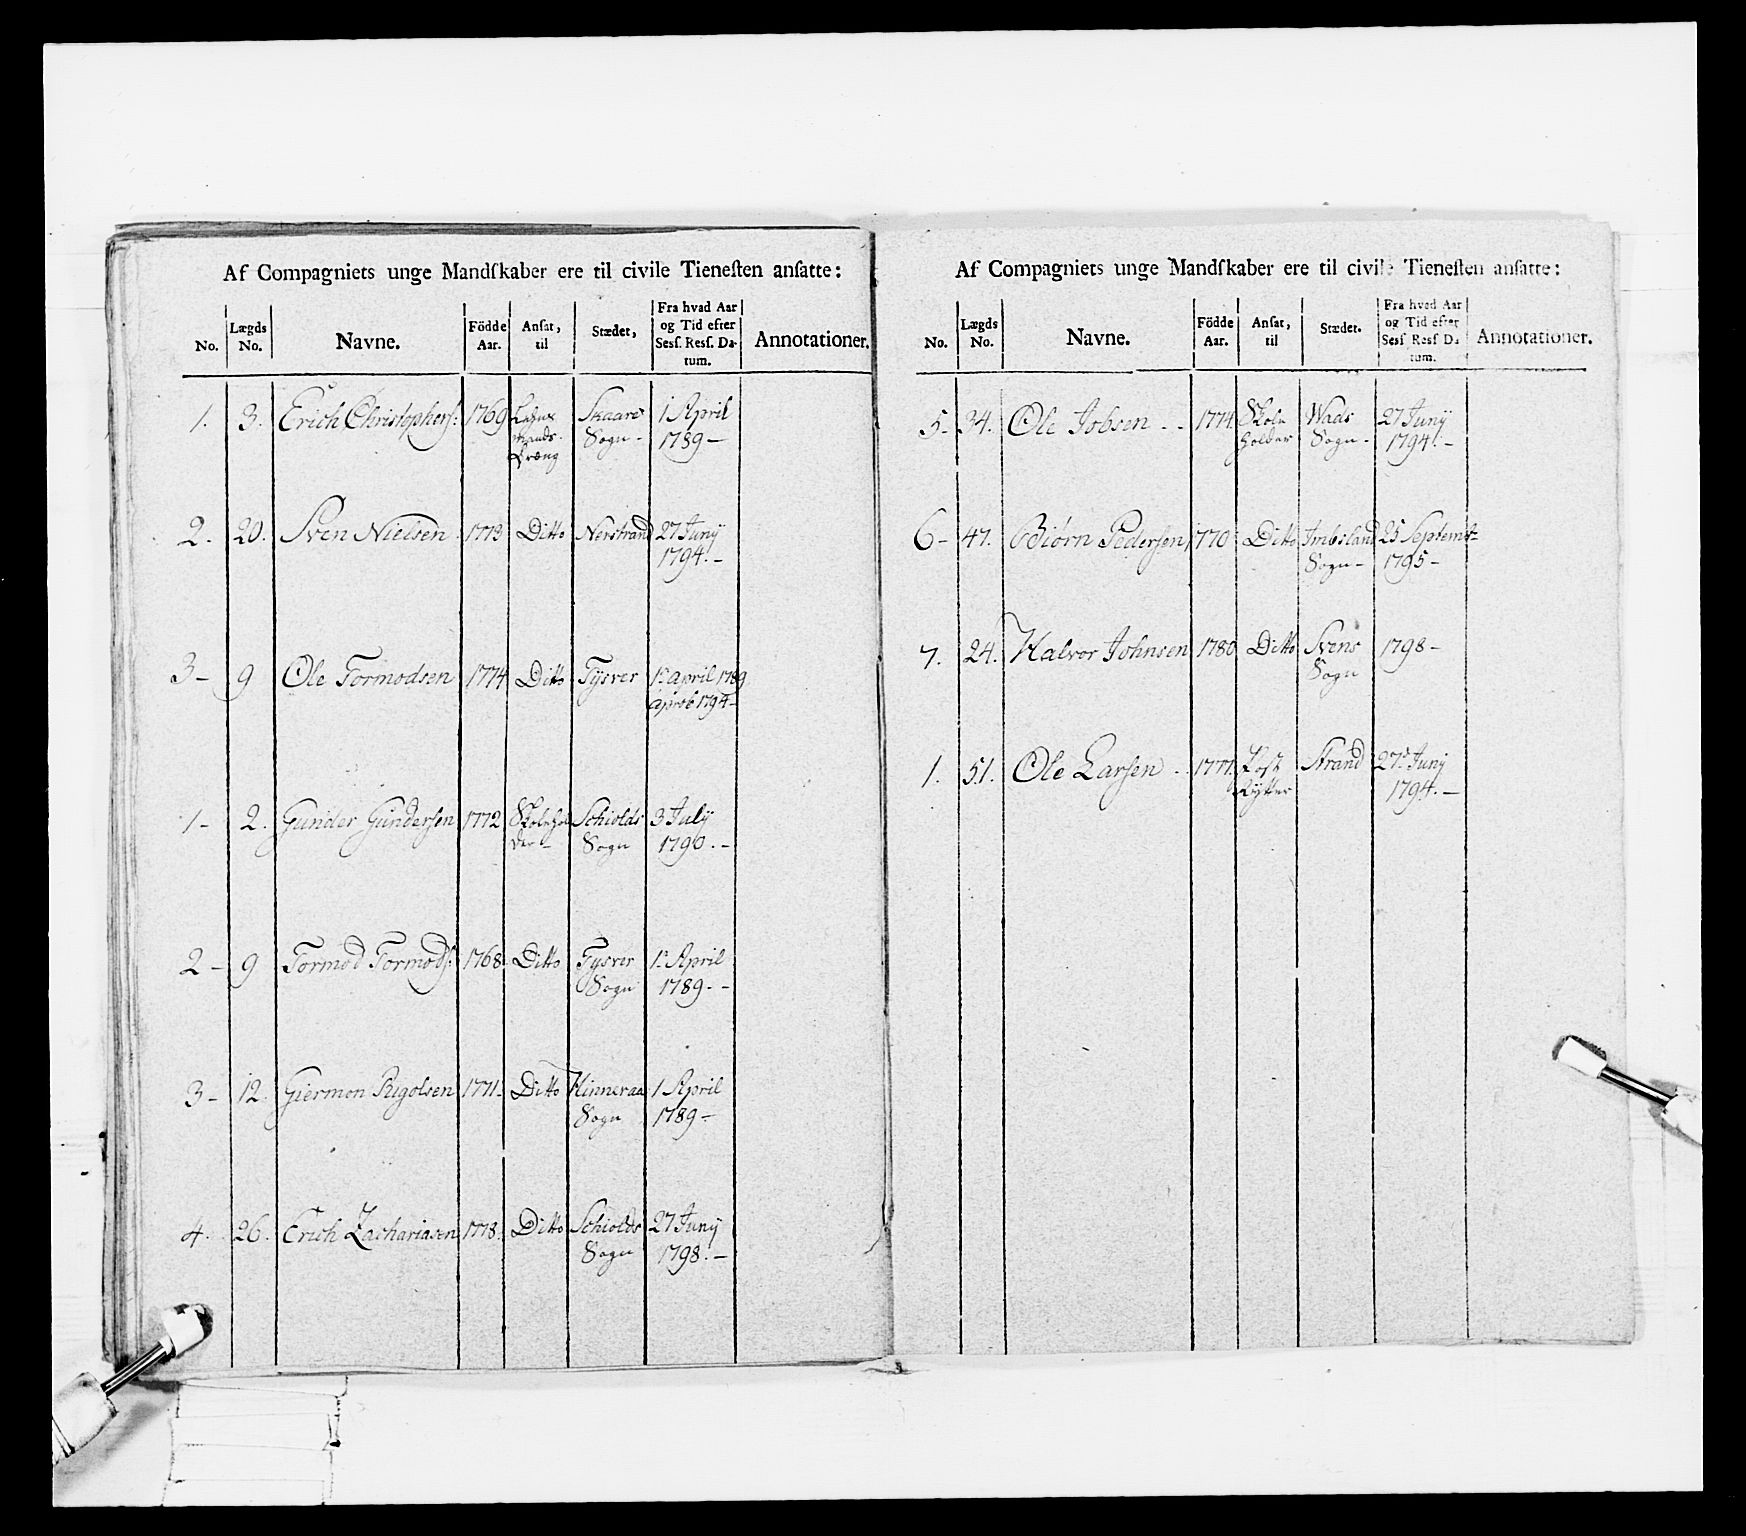 Af Compagniets unge Mandſkaber ere til civile Tieneſten anſatte:
No. Lægds No. Navne. Födde Aar. Anſat, til Stædet, Fra hvad Aar og Tid efter Sesſ. Resſ. Datum. Annotationer.
1. 3. Erich Christophers: 1769 Skaare 1 April
mands- Sogn- 1789-
dræng
2. 20. Sven Nielsen 1773 Ditto Nerstrand 27 Juny
1794.-
3- 9 Ole Tormodsen 1774 Ditto Tysver 1 april 1789
aprob 1794-
1- 2. Gunder Gundersen 1772 Skolehol Schiolds 3 July
der- Sogn 1790.-
2- 9 Tormod Tormods: 1768 Ditto Tysver 1 April
Sogn 1789.-
3- 12. Giermon Rigolsen 1771. Ditto Hinneraa 1 April
Sogn 1789-
4. 26. Erich Zachariasen 1778. Ditto Schiolds 27 Juny
Sogn 1798.-
Af Compagniets unge Mandſkaber ere til civile Tieneſten anſatte:
No. Lægds No. Navne. Födde Aar. Anſat, til Stædet. Fra hvad Aar og Tid efter Sesſ Resſ Datum. Annotationer.
5- 34. Ole Jobsen - - 1774. Skole Wads 27 Juny
holder Sogn- 1794.-
6- 47. Biörn Pedersen 1770 Ditto Imbsland 25 Septembr
Sogn- 1795-
7. 24. Halvor Johnsen 1780 Ditto Svens 1798-
Sogn
1. 51. Ole Larsen - - 1771. Post Strand 27 Juny
Rytter 1794.-